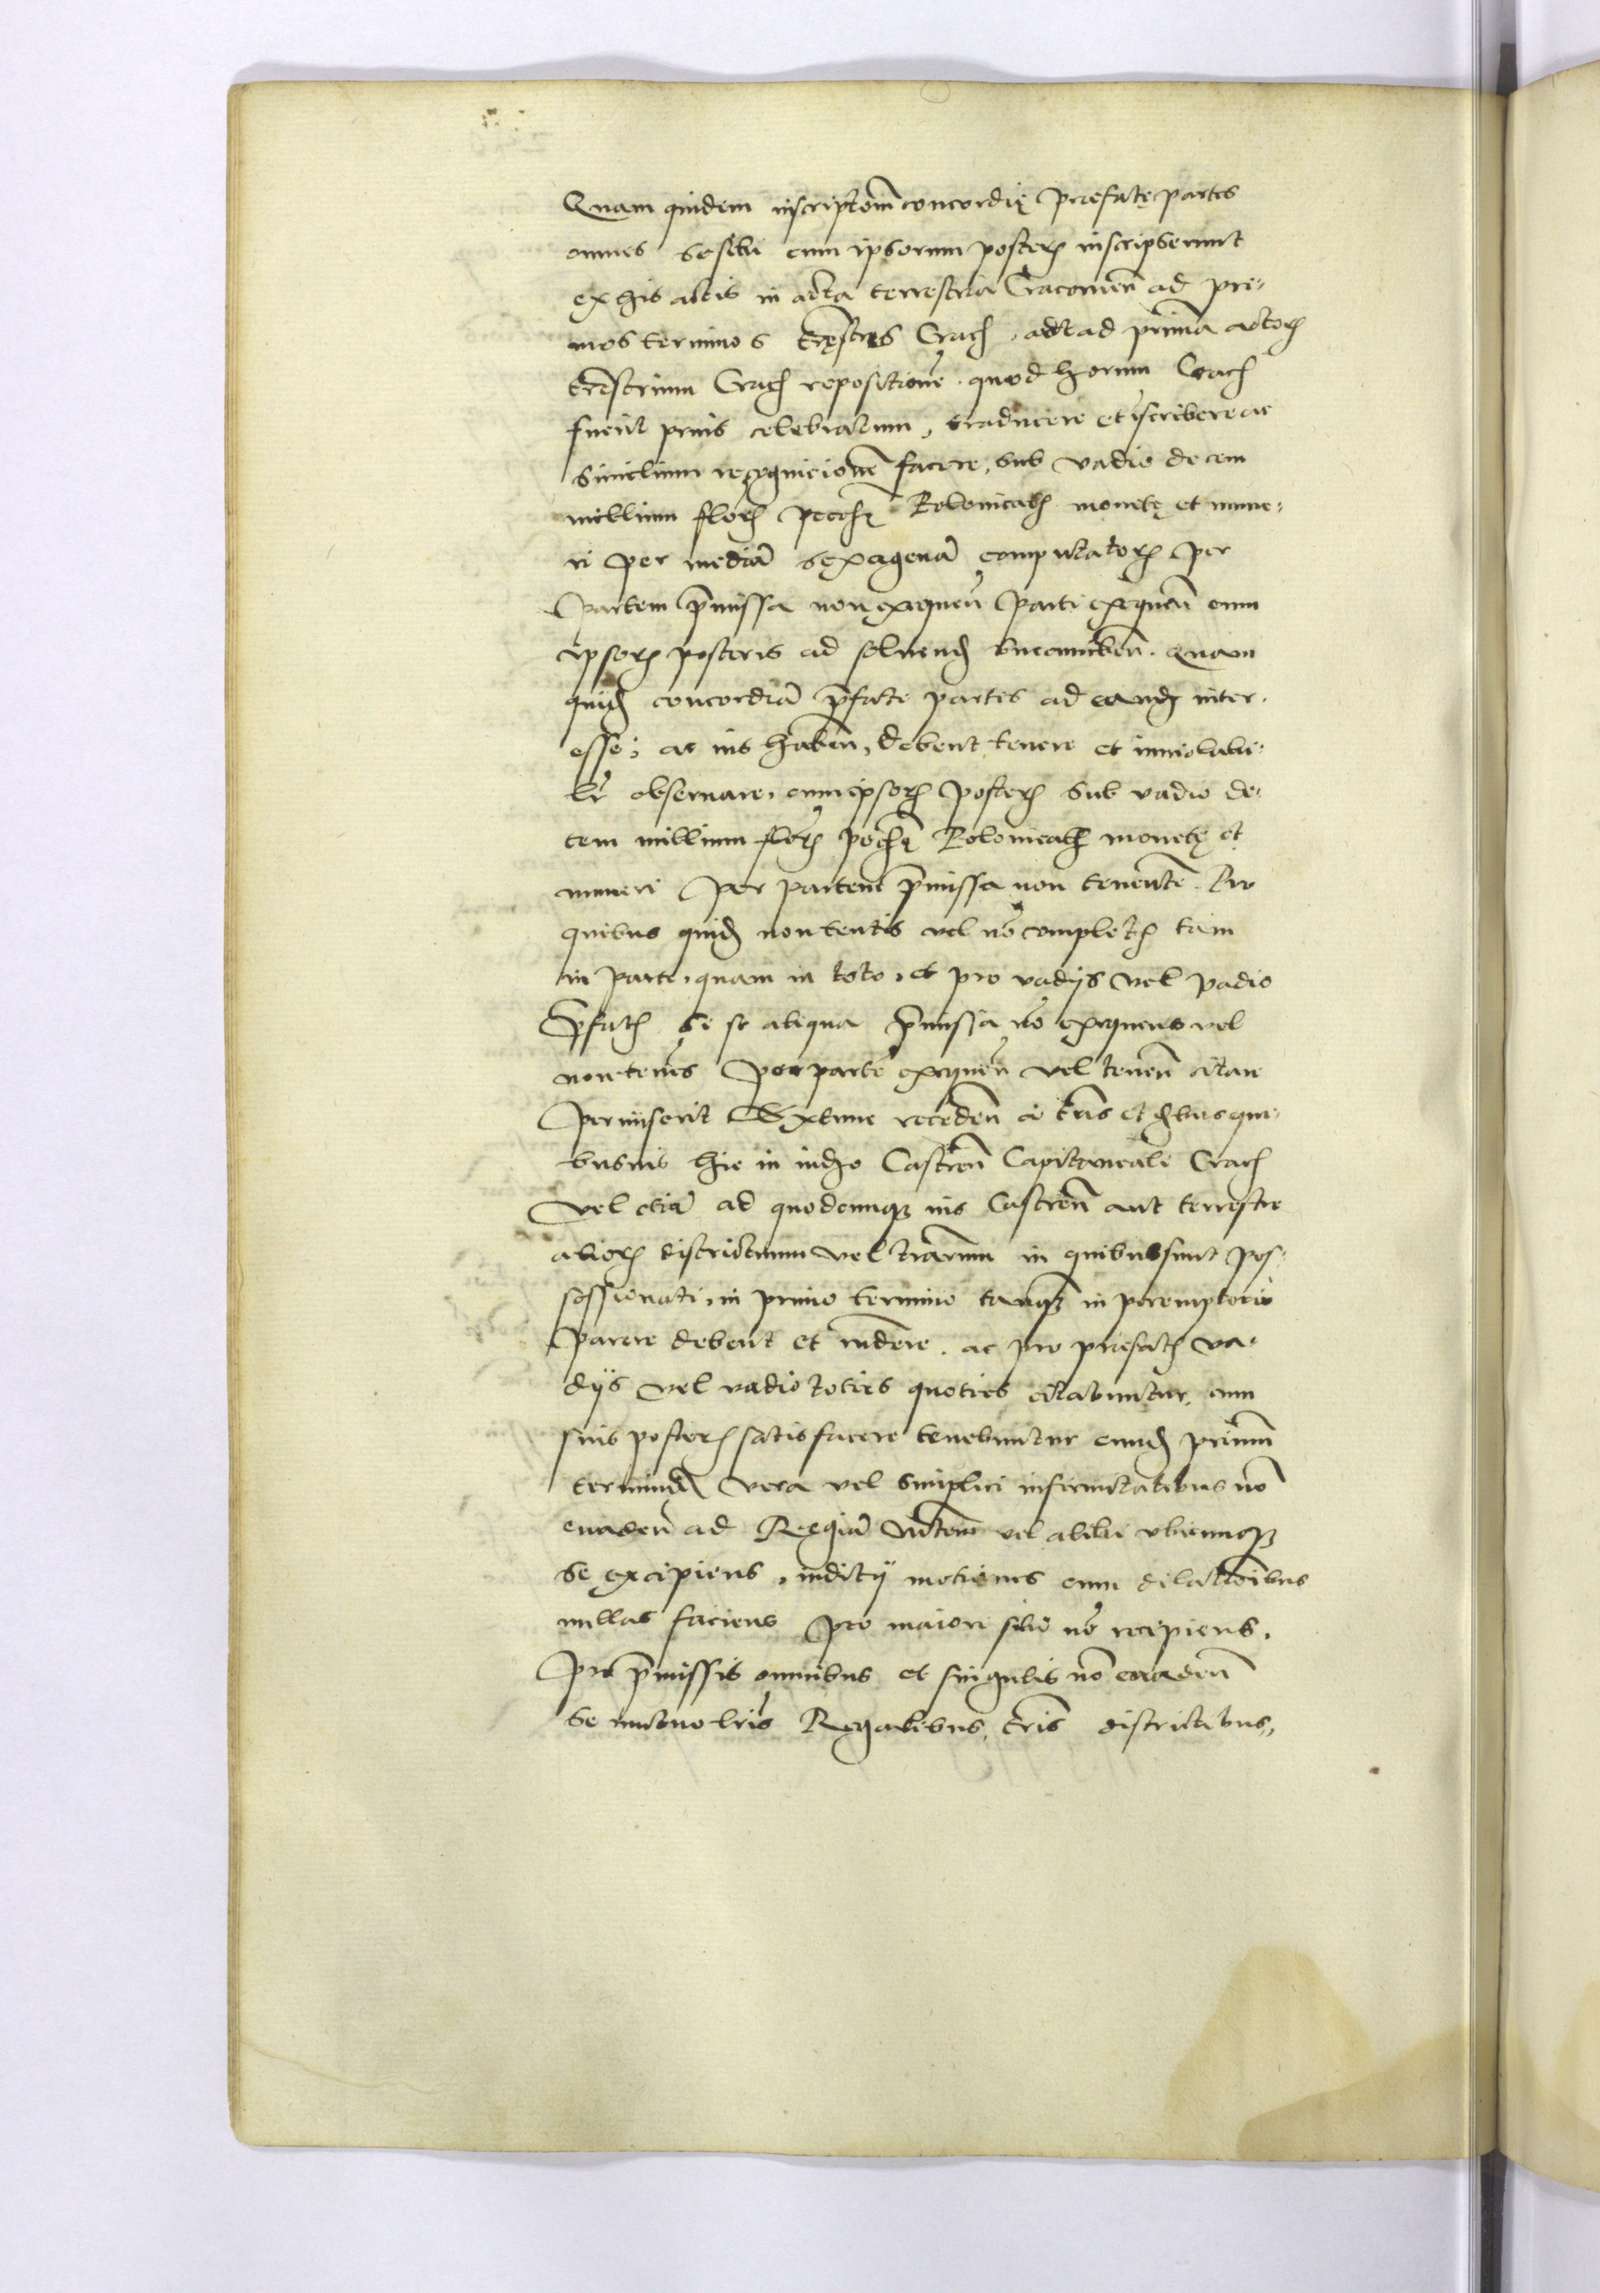 Quam quidem inscriptõm concordię præfatę partes
omnes se sibi cum ipsorum posteris inscripserunt
ex his actis in acta terrestria Cracovieñ ad pri-
mos terminos trēstres Crac. aut ad primã actorum
trēstrium Crac. repositionē, quod horum Crac.
fuerit prius celebratum, traducere et īscribere ac
similium recognicionē facere, sub vadio decem
millium floř pecchę Polonicalis monetę et nume-
ri per mediã sexagenã computatorum per
partem p̄missa non exequeñ parti exequeñ cum
ipsorum posteris ad solvend succumbeñ. Quam
quid concordiã p̄fate partes ad eand inter-
esse, ac ius habeñ, debent tenere et inviolabi-
lr̄ observare, cum ipsorum posteris sub vadio de-
cem millium floř pecchę Polonicalis monetę et
numeri per partem p̄missa non tenentē. Pro
quibus quid non tentis vel nõ completis tam
in parte, quam in toto, et pro vadijs vel vadio
p̄fatis si se aliqua p̄missa nõ exequens vel
non tenēs per partē exequeñ vel teneñ citari
permiserit Extunc recedeñ a trīs et
busvis hic in iudicio Castreñ Capitaneali Crac.
Vel etiã ad quodcunque ius Castreñ aut terrestre
aliorum districtuum vel trarum in quibus sunt pos-
sessionati, in primo termino tanque in peremptorio
parere debent et rñdere, ac pro præfatis va-
dijs vel vadio toties quoties citabuntur, cum
suis posteris satisfacere tenebuntur eund primũ
terminũ vera vel simplici infirmitatibus nõ
evadeñ ad Regiã vel alibi ubicunque
se excipiens, iudicij motiones cum dilationibus
nullas faciens pro maiori sibi nõ recipiens.
Pro p̄missis omnibus et singulis nõ evadeñ
se mutuo lrīs Regalibus, trīs districtibus,